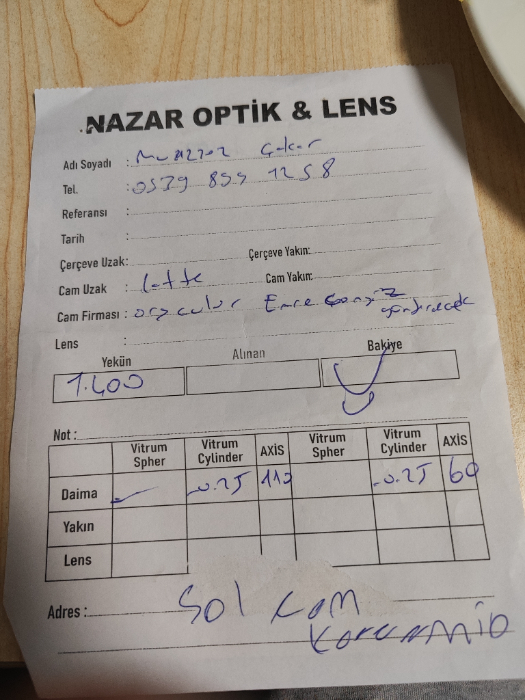 NAZAR OPTİK & LENS
Adı Soyadı :
Tel. : 0539 859 1258
Referansı :
Tarih :
Çerçeve Uzak: Çerçeve Yakın:
Cam Uzak : Cam Yakın:
Cam Firması : Emre
Lens :
Yekün Alınan Bakiye
1.400
Not :
Vitrum Spher Vitrum Cylinder AXİS Vitrum Spher Vitrum Cylinder AXİS
Daima -0.25 110 -0.25 60
Yakın
Lens
Adres : Sol cam